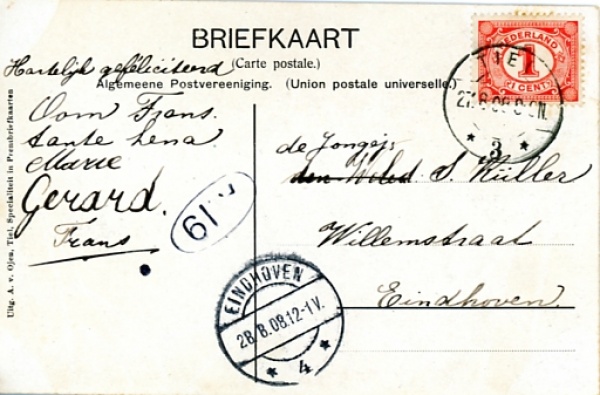 BRIEFKAART
(Carte postale.)
Algemeene Postvereeniging. (Union postale universelle.)
Hartelijk gefeliciteerd
Oom Frans.
tante Lena.
Marie
Gerard.
Frans
Uitg. A. v. Ojen, Tiel, Specialiteit in Prentbriefkaarten
19
NEDERLAND
1
(1 CENT)
TIEL
3
de Jongej.
S. Küller
Willemstraat
Eindhoven.
EINDHOVEN
28.8.08.12-1V.
4